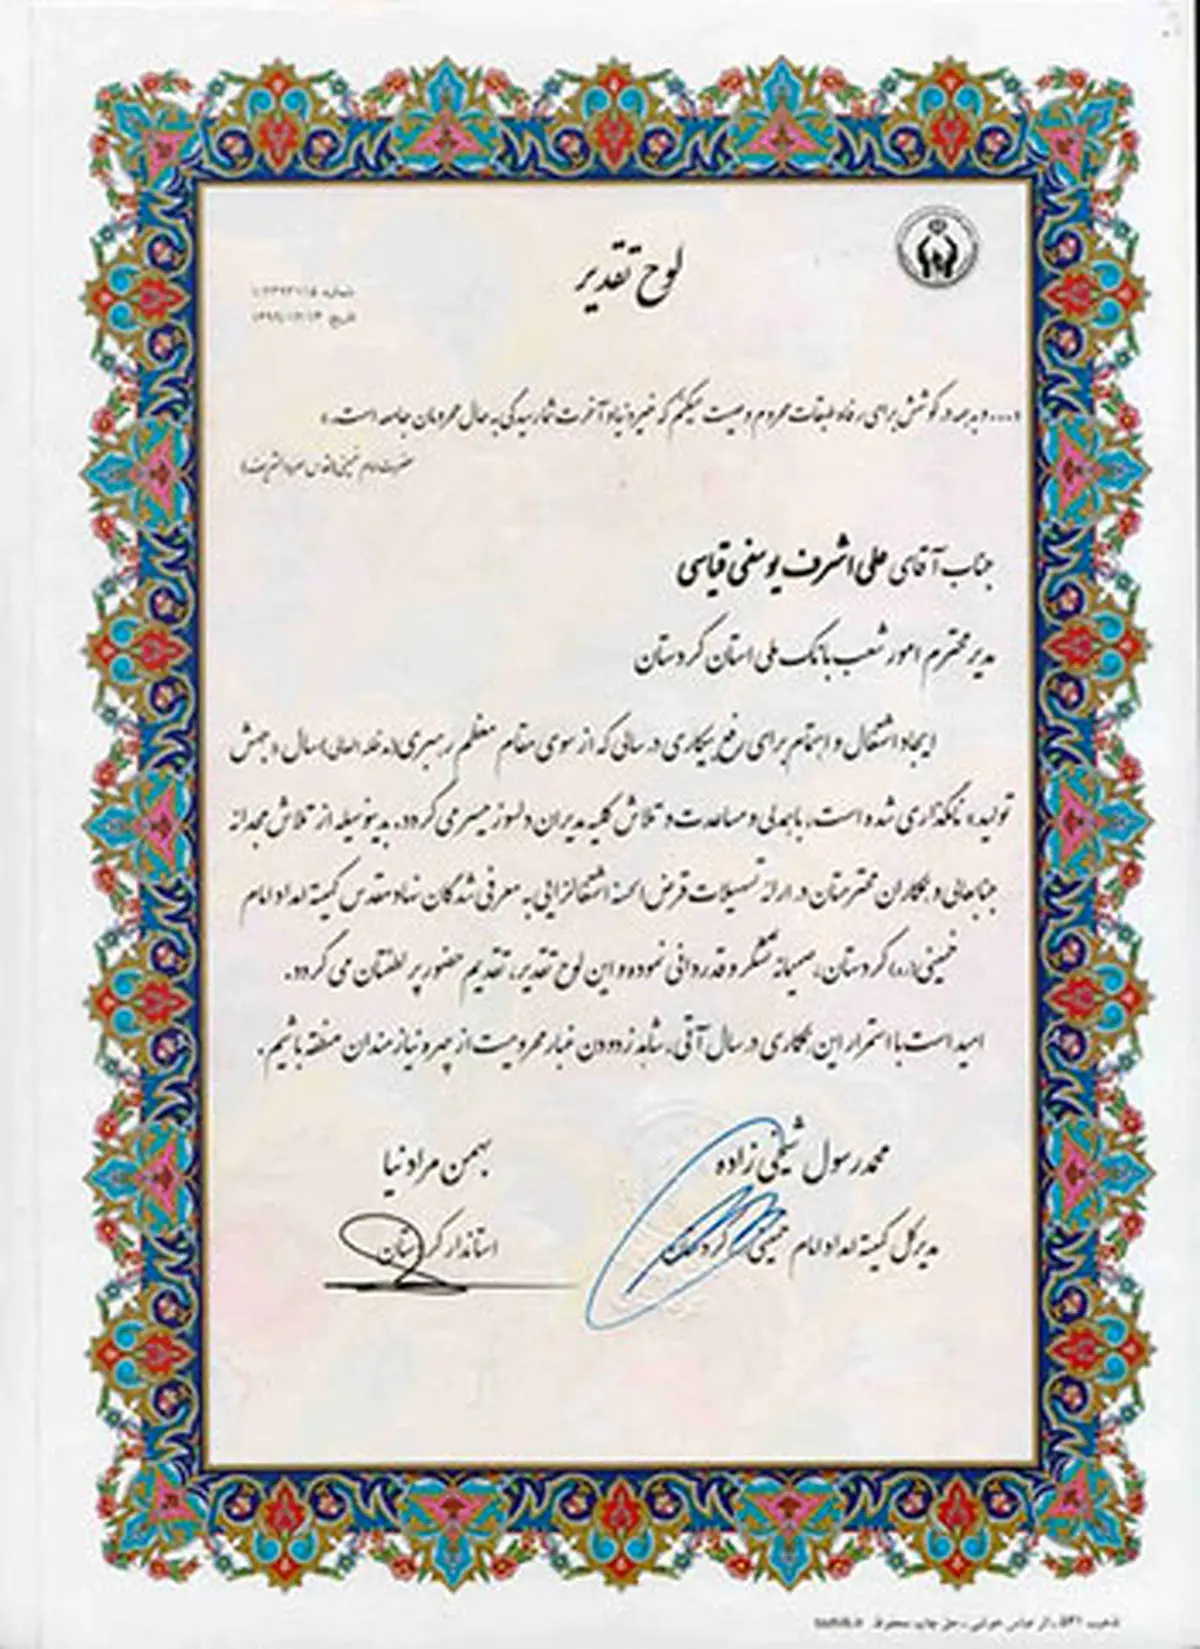 لوح تقدیر
شماره
تاریخ ۱۳۹۹/۱۲/۱۳
«... و به همه در کوشش برای رفاه طبقات محروم وصیت میکنم که خیر دنیا و آخرت شما رسیدگی به حال محرومان جامعه است.»
حضرت امام خمینی(قدس سره الشریف)
جناب آقای علی اشرف یوسفی قیاسی
مدیر محترم امور شعب بانک ملی استان کردستان
ایجاد اشتغال و اهتمام برای رفع بیکاری در سالی که از سوی مقام معظم رهبری(مدظله العالی)سال «جهش
تولید» نامگذاری شده است، با همدلی و مساعدت و تلاش کلیه مدیران دلسوز میسر می گردد. بدینوسیله از تلاش مجدانه
جنابعالی و همکاران محترمتان در ارائه تسهیلات قرض الحسنه اشتغالزایی به معرفی شدگان نهاد مقدس کمیته امداد امام
خمینی(ره) کردستان، صمیمانه تشکر و قدردانی نموده و این لوح تقدیر، تقدیم حضور پر لطفتان می گردد.
امید است با استمرار این همکاری در سال آتی، شاهد زدودن غبار محرومیت از چهره نیازمندان منطقه باشیم.
محمدرسول شیخی زاده
بهمن مرادنیا
مدیرکل کمیته امداد امام خمینی کردستان
استاندار کردستان